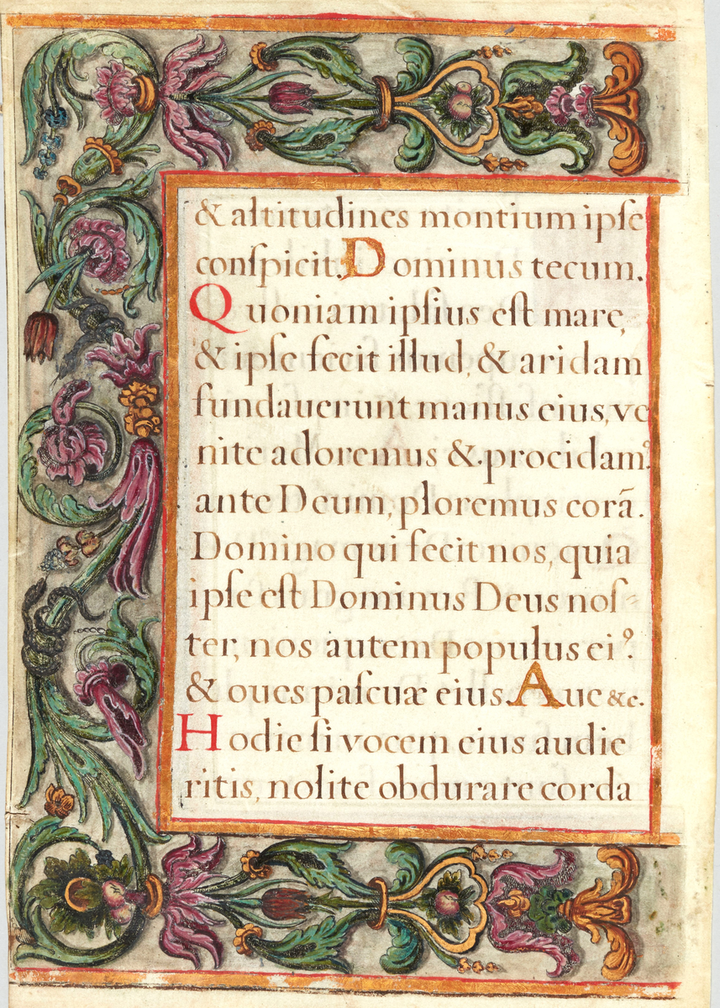 & altitudines montium ipſe
conſpicit. Dominus tecum.
Quoniam ipſius eſt mare,
& ipſe fecit illud, & aridam
fundauerunt manus eius, ve
nite adoremus & procidamꝰ
ante Deum, ploremus corã.
Domino qui fecit nos, quia
ipſe eſt Dominus Deus noſ-
ter, nos autem populus eiꝰ.
& oues paſcuæ eius. Aue &c.
Hodie ſi vocem eius audie
ritis, nolite obdurare corda